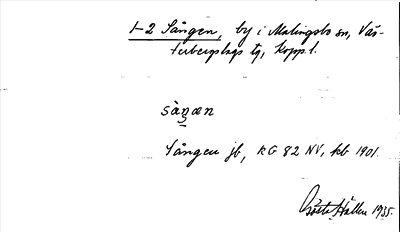 1-2 Sången, by i Malingsbo sn, Väs-
terbergslags tg, Kopp. l.
sàŋæn
Sången jb, KG 82 NV, kb 1901.
Gösta Hallén 1935.